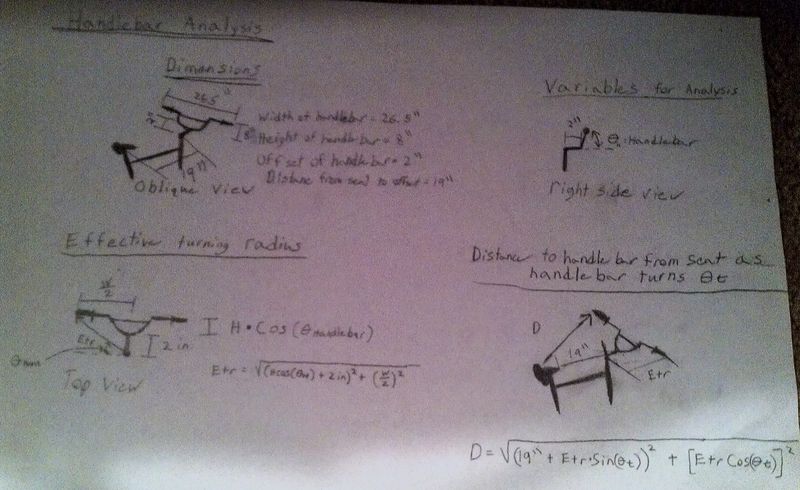 Handlebar Analysis
Dimensions
26.5"
2"
8"
19"
Oblique View
Width of handlebar = 26.5"
Height of handlebar = 8"
Offset of handlebar = 2"
Distane from seat to offset = 19"
Variables for Analysis
2"
θ Handlebar
right side view
Effective turning radius
W/2
Etr
2 in
Top View
H • Cos(θHandlebar)
Etr = √((Hcos(θH) + 2in)² + (W/2)²
Distance to handlebar from seat as
handlebar turns θt
D
19"
Etr
D = √(19" + Etr•Sin(θt))² + [Etr Cos(θt)]²